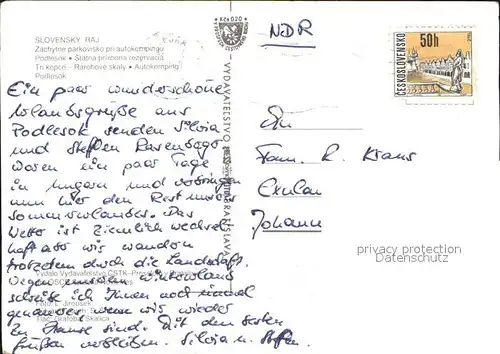 SLOVENSKÝ RAJ
Záchytné parkovisko pri autokempingu
Podlesok • Štátna prírodná rezervácia
Tri kopce – Rarohové skaly • Autokemping
Podlesok
Kčs 0,20
NDR
ČESKOSLOVENSKO
50h
Ein paar wunderschöne
Urlaubsgrüße aus
Podlesok senden Silvia
und Steffen
Waren ein paar Tage
in Ungarn und verbringen
nun hier den Rest unseres
Sommerurlaubes. Das
Wetter ist ziemlich wechsel
haft aber wir wandern
trotzdem durch die Landschaft.
Wegen
schreibe ich Ihnen noch einmal
genauer, wenn wir wieder
zu Hause sind. Mit den besten
Grüßen verbleiben Silvia u. Steffen
An
Fam. R. Kraus
Johann
VYDAVATEĽSTVO
BRATISLAVA
privacy protection
Datenschutz
Foto: L. Jiroušek
Tlač: Grafobal Skalica